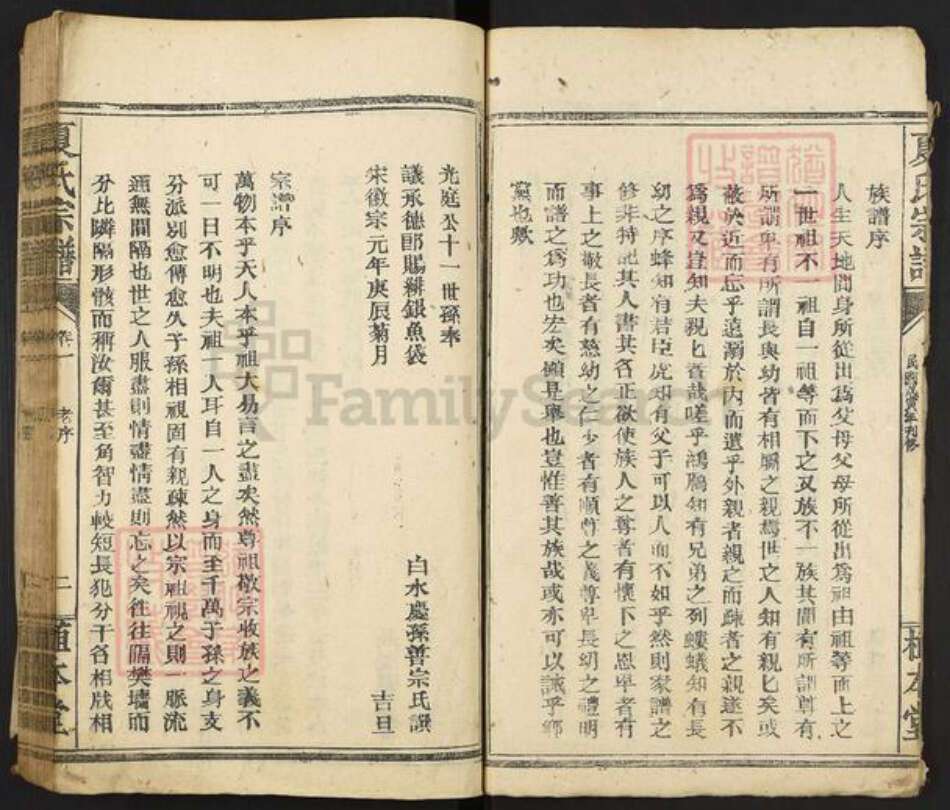 族譜序
人生天地間身所從出為父母父母所從出為祖由祖等而上之
一世祖不一祖自一祖等而下之又族不一族其間有所謂尊有
所謂卑有所謂長與幼皆有相屬之親焉世之人知有親匕矣或
蔽於近而忘乎遠溺於內而遺乎外親者親之而疎者之親遂不
為親又豈知夫親匕者哉嗟乎鴻鴈知有兄弟之列螻蟻知有長
幼之序蜂知有君臣虎知有父子可以人而不如乎然則家譜之
修非特記其人書其名正欲使族人之尊者有懷下之恩卑者有
事上之敬長者有慈幼之仁少者有順尊之義尊卑長幼之禮明
而譜之為功也宏矣顧是舉也豈惟善其族哉或亦可以誠乎鄉
黨也歟
夏氏宗譜
民國
修
植本堂
光庭公十一世孫奉
議承德郎賜緋銀魚袋
白水慶孫普宗氏譔
宋徽宗元年庚辰菊月 吉旦
宗譜序
萬物本乎天人本乎祖大易言之盡矣然尊祖敬宗收族之義不
可一日不明也夫祖一人耳自一人之身而至千萬子孫之身支
分派別愈傳愈久子孫相視固有親疎然以宗祖視之則一脈流
通無間隔也世之人服盡則情盡情盡則忘之矣往往隔樊墻而
分比隣隔形骸而稱汝爾甚至角智力較短長犯分干名相戕相
夏氏宗譜
卷一 老序 二 植本堂
FamilySearch